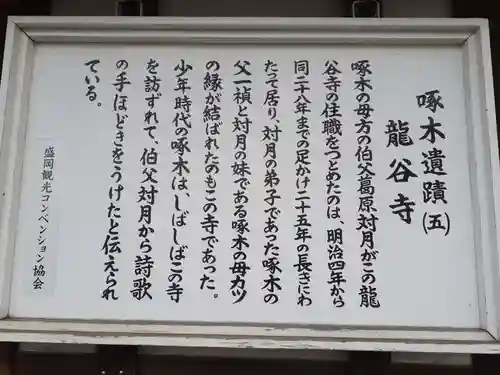 啄木遺蹟(五)
龍谷寺
啄木の母方の伯父葛原対月がこの龍
谷寺の住職をつとめたのは、明治四年から
同二十八年までの足かけ二十五年の長きにわ
たって居り、対月の弟子であった啄木の
父一禎と対月の妹である啄木の母カツ
の縁が結ばれたのもこの寺であった。
少年時代の啄木は、しばしばこの寺
を訪ずれて、伯父対月から詩歌
の手ほどきをうけたと伝えられ
ている。
盛岡観光コンベンション協会